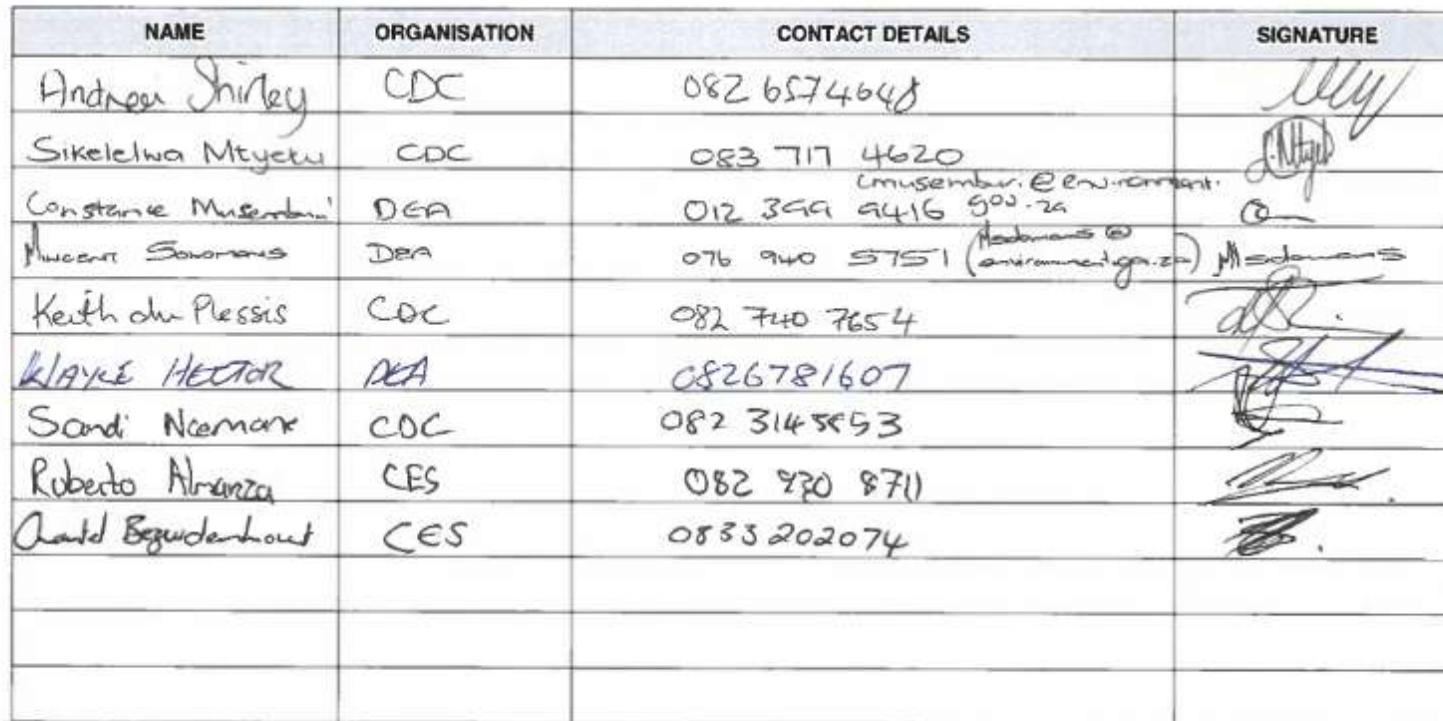 NAME ORGANISATION CONTACT DETAILS SIGNATURE
Andrea Shirley CDC 082 6574648
Sikelelwa Mtyeku CDC 083 717 4620
Constance Musembwi DEA 012 399 9416 cmusembwi@environment.gov.za
Solomons DEA 076 940 5751 (Msolomons@environment.gov.za) Msolomons
Keith du Plessis CDC 082 740 7654
WAYNE HECTOR DEA 0826781607
Sandi CDC 082
Roberto Almanza CES 082 930 8711
Chantel Bezuidenhout CES 0833202074